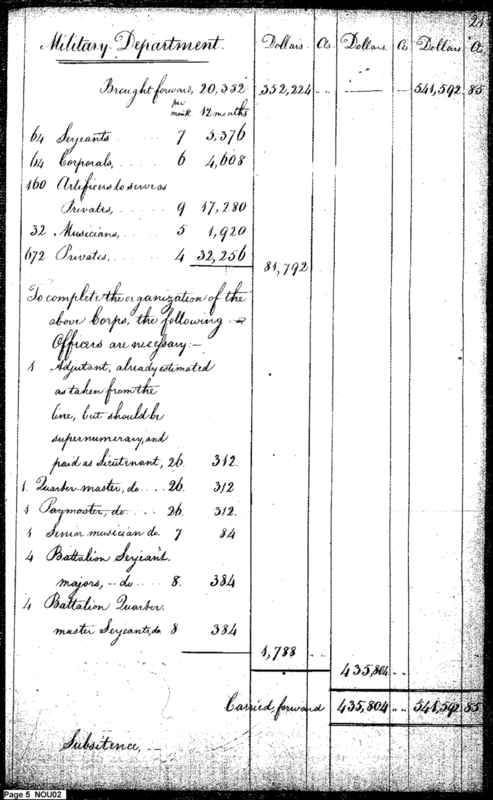 21
Military Department. Dollars. Cts Dollars. Cts Dollars Cts
Brought forward, 20,352 352,224 .. —— .. 541,592 85
per month 12 months
64 Serjeants 7 5,376
64 Corporals, 6 4,608
160 Artificers to serve as
Privates, 9 17,280
32 Musicians, 5 1,920
672 Privates, 4 32,256
81,792
To complete the organization of the
above Corps, the following
Officers are necessary:—
1 Adjutant, already estimated
as taken from the
line, but should be
supernumerary, and
paid as Lieutenant, 26. 312.
1 Quarter-master, do 26. 312
1 Paymaster, do 26. 312.
1 Senior musician do. 7 84
4 Battalion Serjeant
majors, — do 8. 384
4 Battalion Quarter
master Serjeants, do 8 384
1,788 ..
435,804 ..
Carried forward 435,804 .. 541,592 85
Subsitence, —
Page 5 NOU02